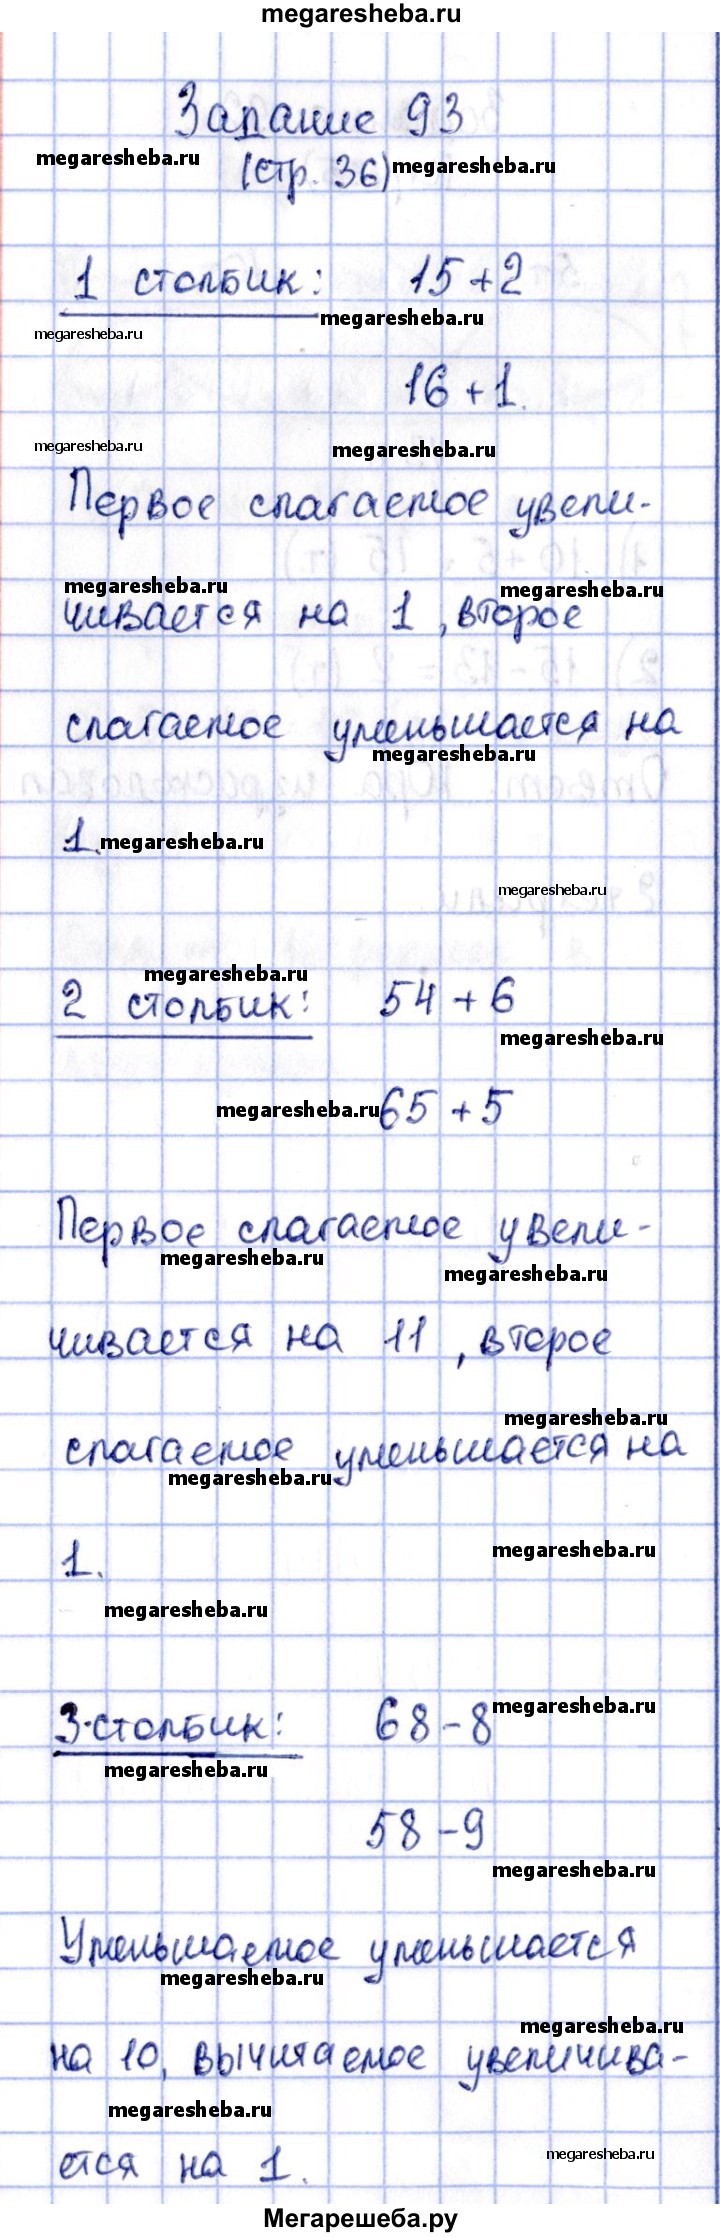 megaresheba.ru
Задание 93
megaresheba.ru
(стр. 36) megaresheba.ru
1 столбик: 15+2
megaresheba.ru
megaresheba.ru
16+1.
megaresheba.ru
megaresheba.ru
Первое слагаемое увели-
megaresheba.ru
megaresheba.ru
чивается на 1, второе
слагаемое уменьшается на
megaresheba.ru
1. megaresheba.ru
megaresheba.ru
megaresheba.ru
2 столбик: 54+6
megaresheba.ru
megaresheba.ru 65+5
Первое слагаемое увели-
megaresheba.ru
megaresheba.ru
чивается на 11, второе
megaresheba.ru
слагаемое уменьшается на
megaresheba.ru
1. megaresheba.ru
megaresheba.ru
3 столбик: 68-8 megaresheba.ru
megaresheba.ru
58-9
megaresheba.ru
Уменьшаемое уменьшается
megaresheba.ru
megaresheba.ru
на 10, вычитаемое увеличива-
megaresheba.ru
ется на 1. megaresheba.ru
Мегарешеба.ру